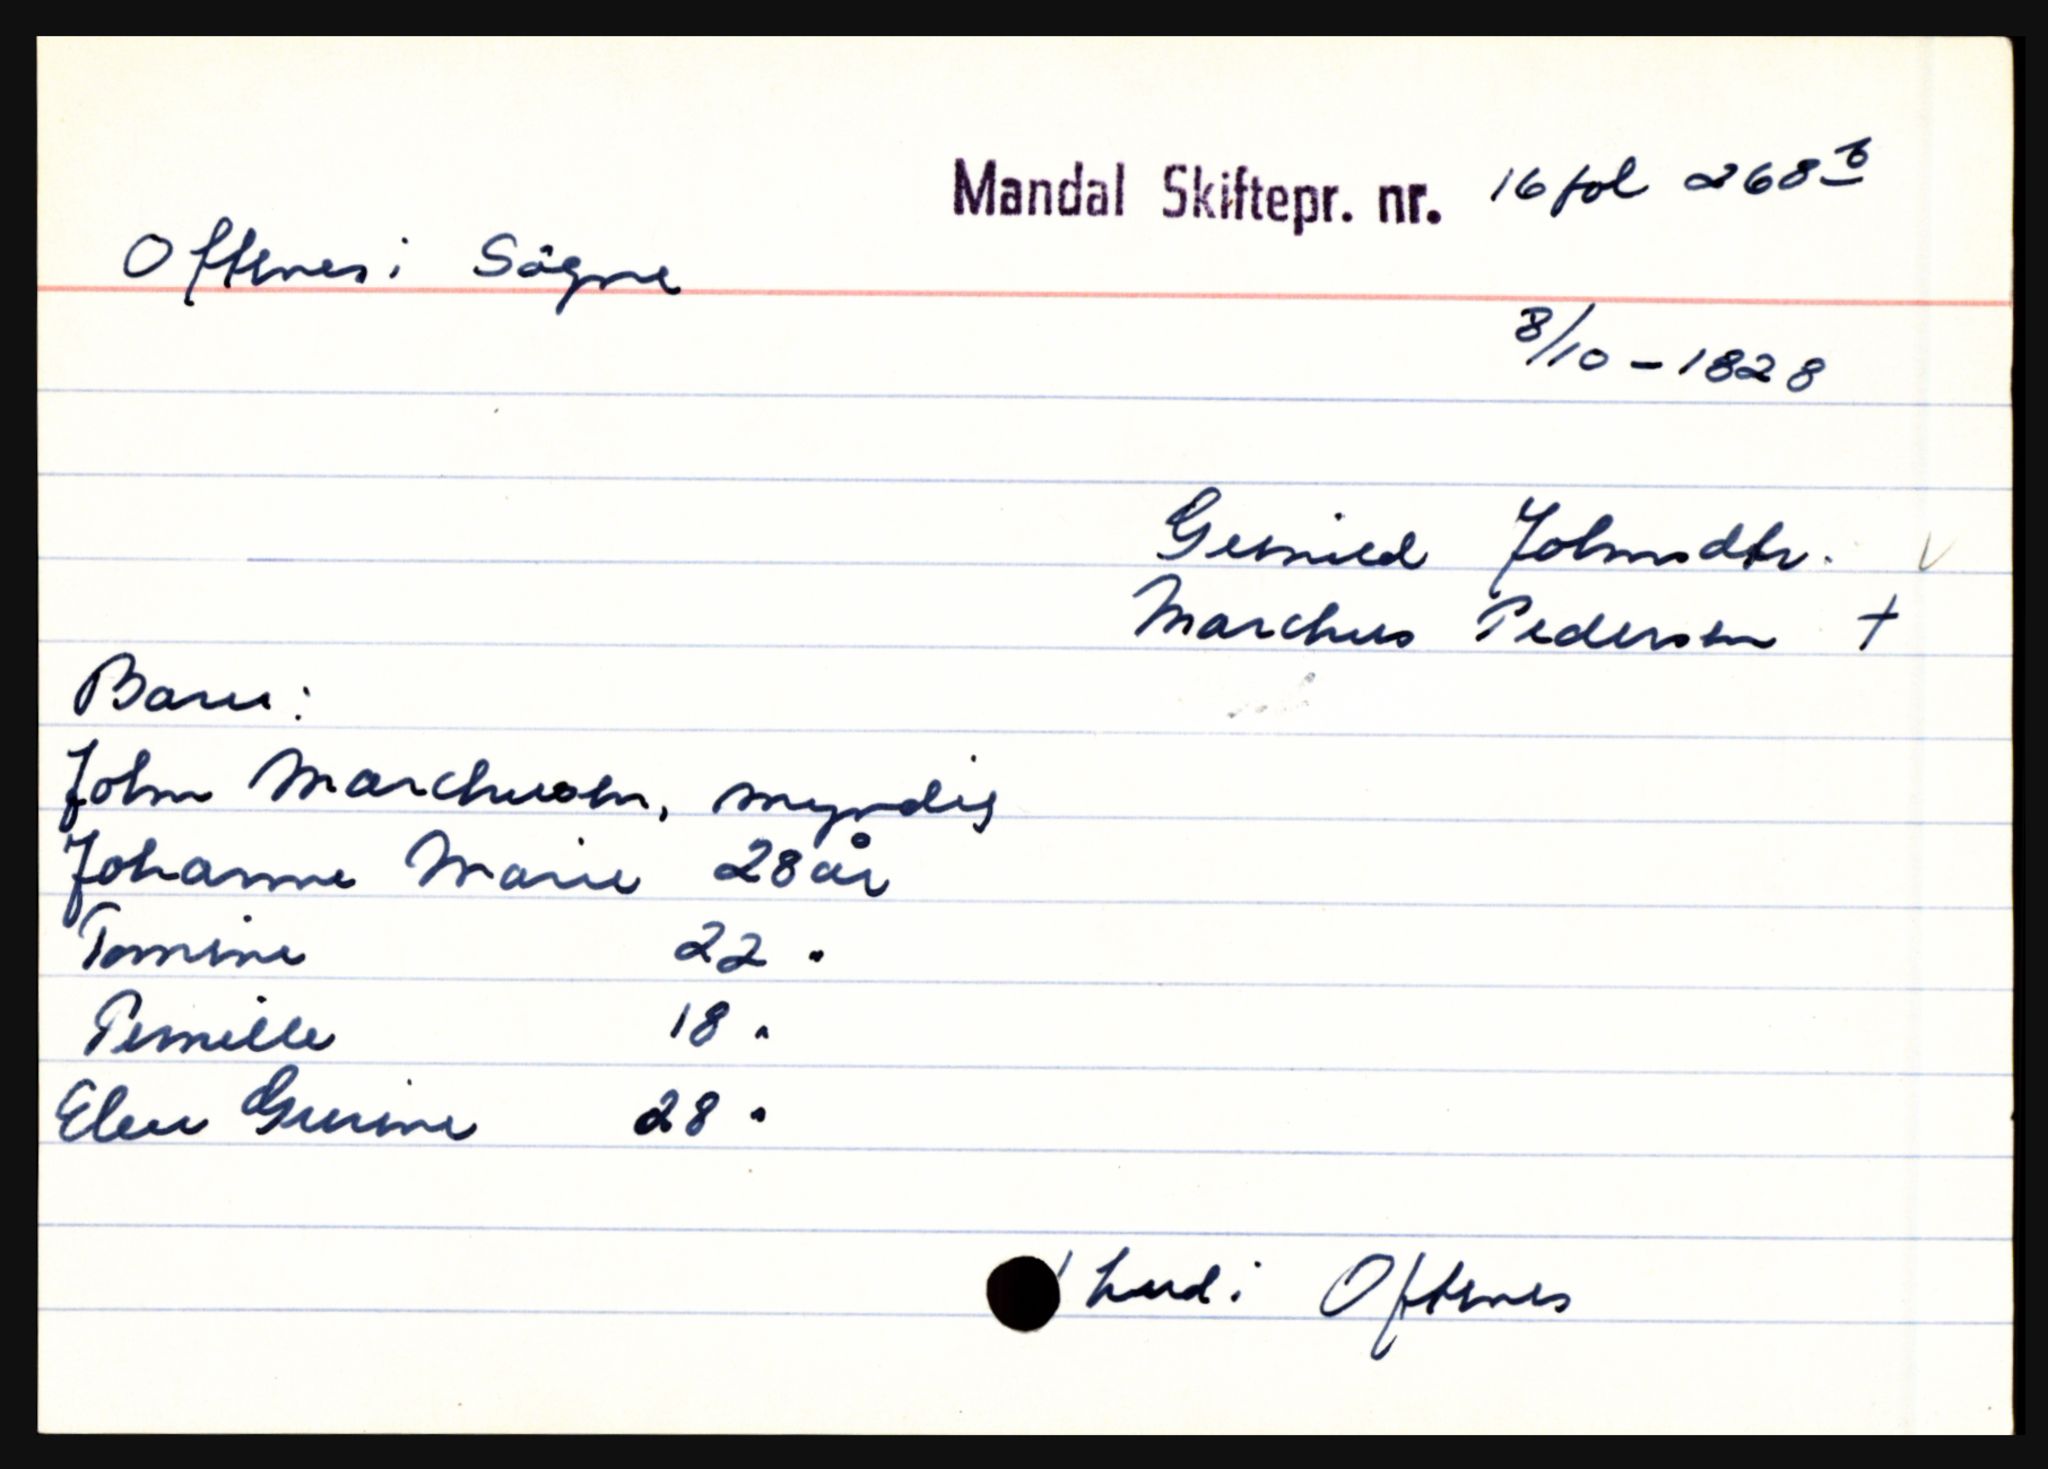 Mandal Skiftepr. nr. 16 fol 268 b
Oftenes i Sögne
8/10 - 1828
Gernild Johnsdtr. v
Marchus Pedersen +
Barn:
John Marchussen, myndig
Johanne Marie 28 år
Tomine 22 "
Pernille 18 "
Elen Gurine 28 "
1 hud i Oftenes